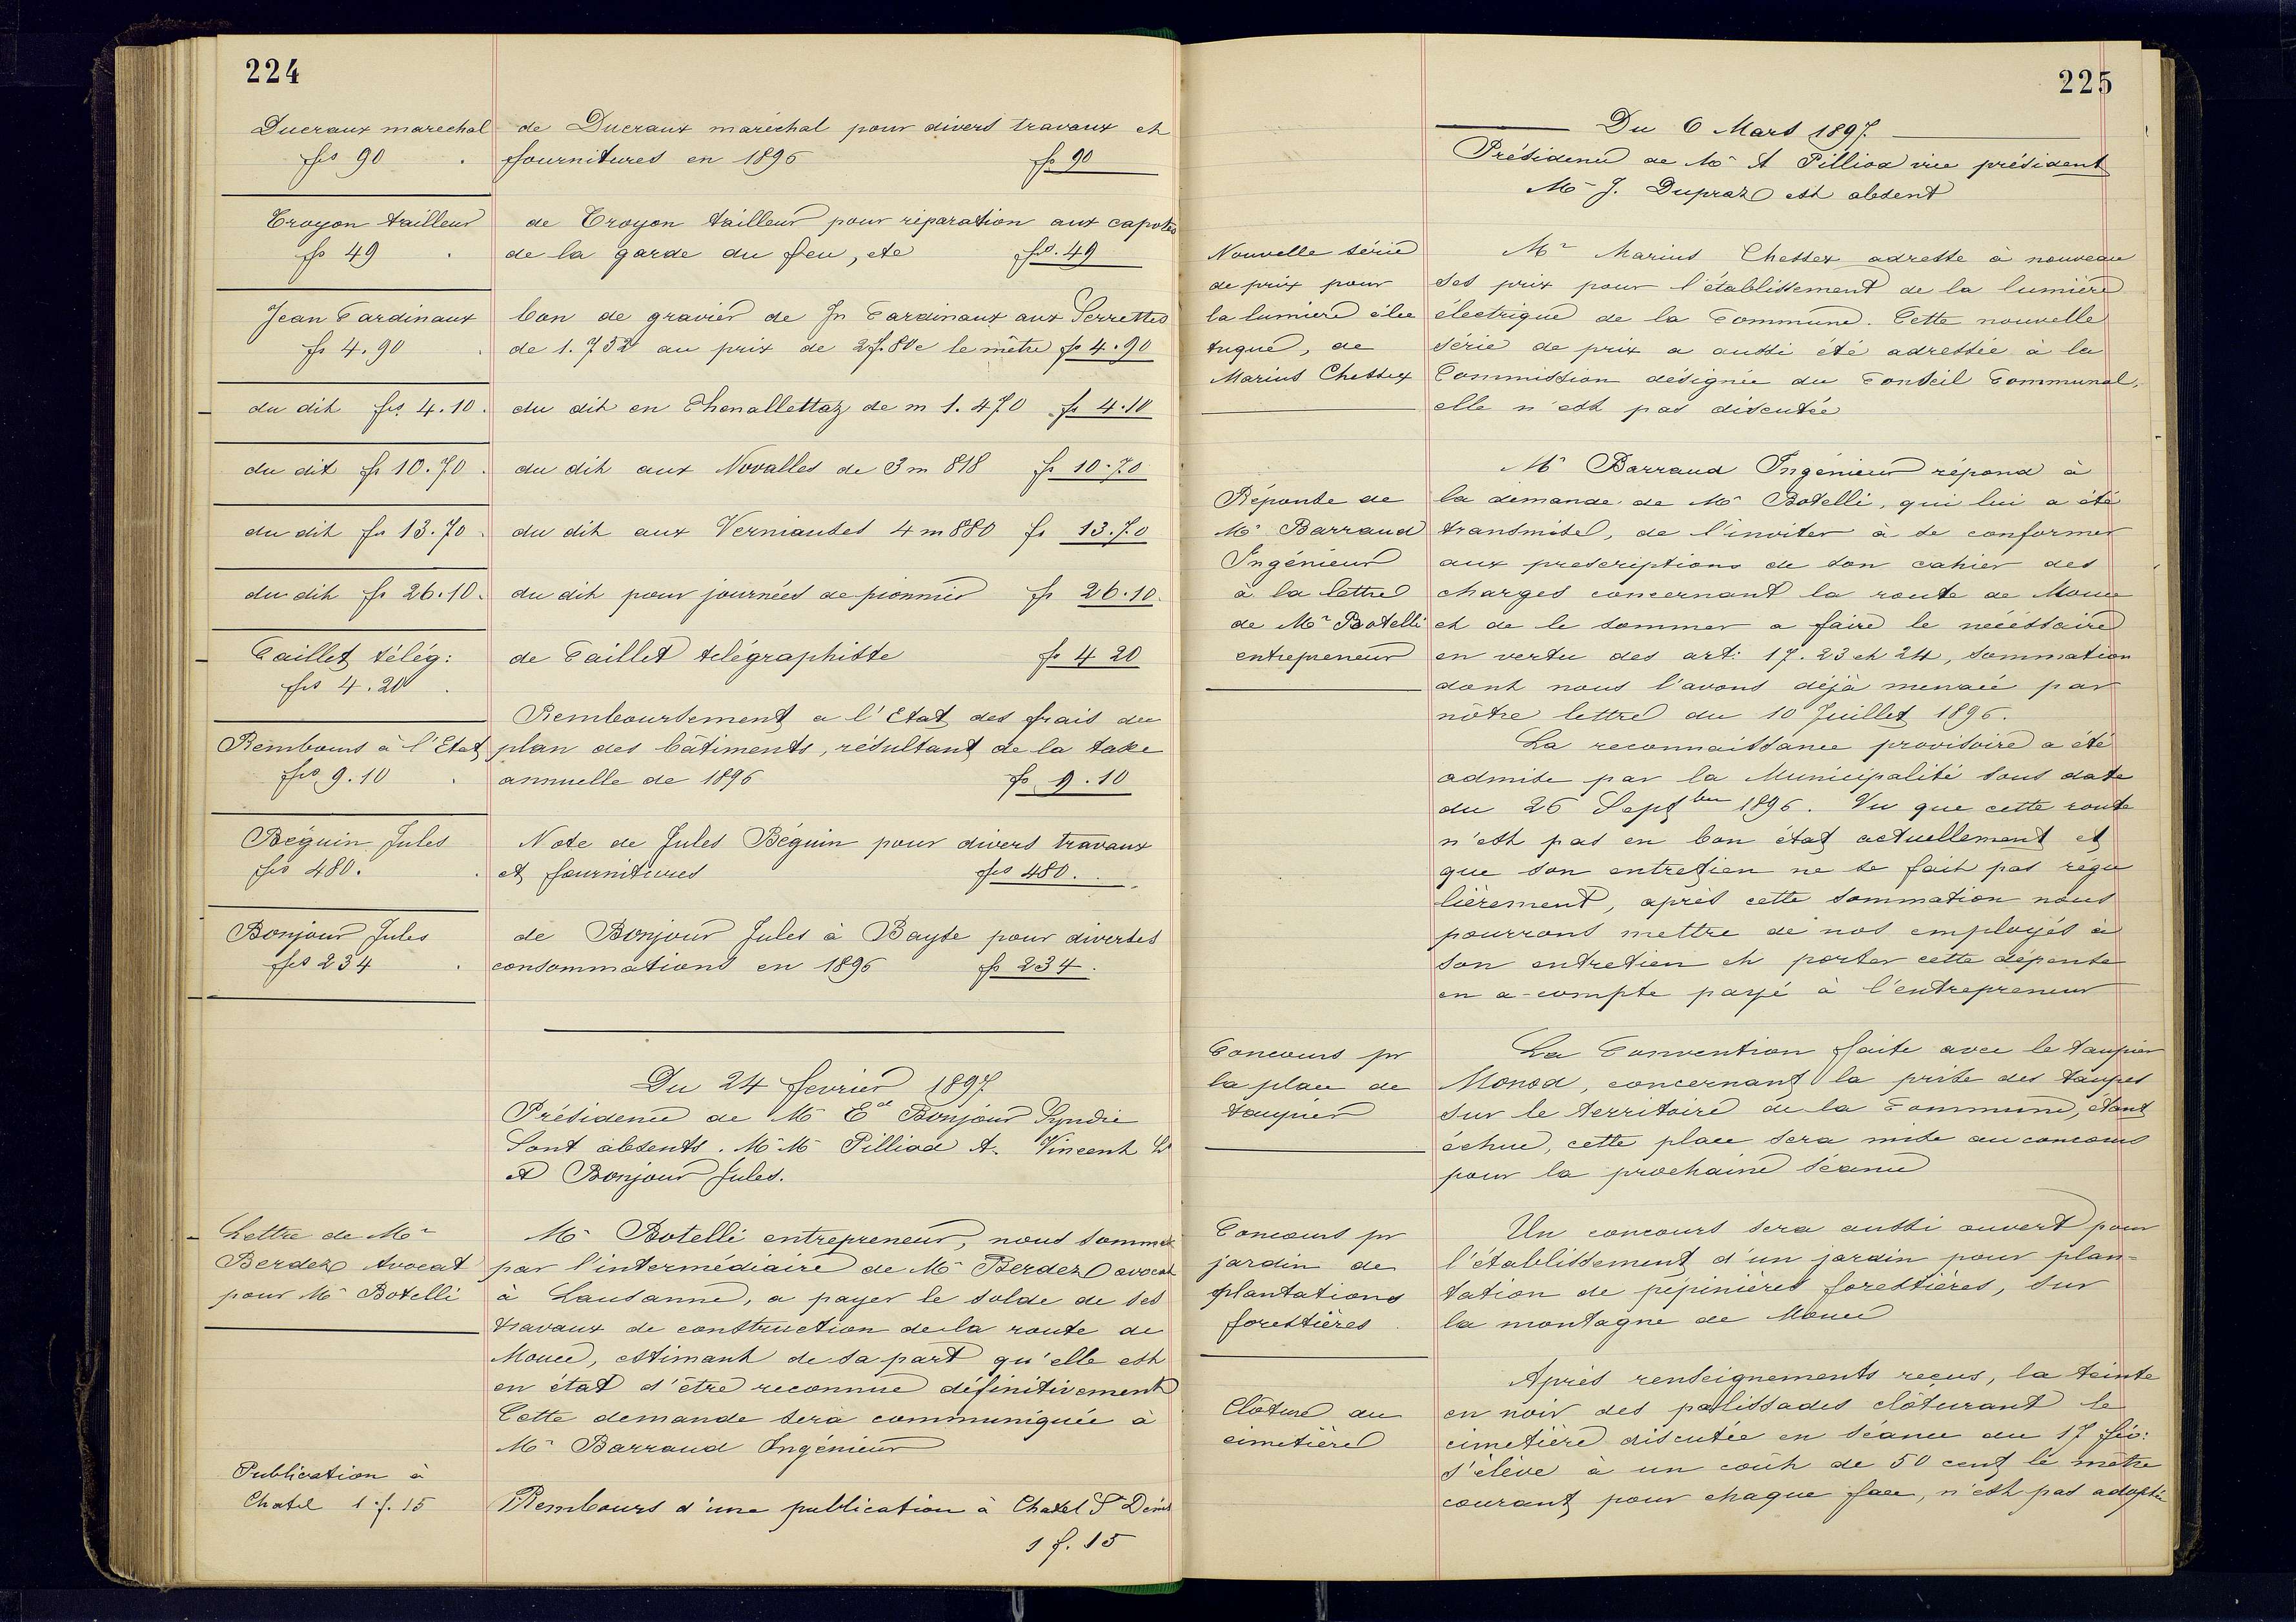 224
Ducraux marechal
frs 90
de Ducraux maréchal pour divers travaux et
fournitures en 1896 fr 90
Troyon tailleur
fr 49
de Troyon tailleur pour réparation aux capotes
de la garde du feu, etc frs. 49
Jean Cardinaux
fr 4.90
bon de gravier de Jn Cardinaux aux Serrettes
de 1.752 au prix de 2f.80c le mètre fr 4.90
du dit frs 4.10.
du dit en Chenallettaz de m 1.470 fr 4.10
du dit fr 10.70.
du dit aux Novalles de 3m 818 fr 10.70
du dit fr 13.70
du dit aux Verniaudes 4m880 fr 13.70
du dit fr 26.10.
du dit pour journées de pionnier fr 26.10.
Caillet télég:
frs 4.20
de Caillet télégraphiste fr 4 20
Rembours à l'Etat
frs 9.10
Remboursement a l'Etat des frais du
plan des bâtiments, résultant de la taxe
annuelle de 1896 fr 9.10
Béguin Jules
frs 480.
Note de Jules Béguin pour divers travaux
et fournitures frs 480.
Bonjour Jules
frs 234
de Bonjour Jules à Bayse pour diverses
consommations en 1896 fr 234.
Du 24 fevrier 1897
Présidence de Mr Ed Bonjour Syndic
Sont absents. M.M. Pilliod A. Vincent Ls
et Bonjour Jules.
Lettre de Mr
Berdez Avocat
pour Mr Botelli
Mr Botelli entrepreneur, nous somme
par l'intermédiaire de Mr Berdez avocat
à Lausanne, a payer le solde de ses
travaux de construction de la route de
Mouce, estimant de sa part qu'elle est
en état d'être reconnue définitivement
Cette demande sera communiquée à
Mr Barraud Ingénieur
Publication à
Chatel 1.f.15
Rembours d'une publication à Chatel St Denis
1 f. 15
225
Du 6 Mars 1897
Présidence de Mr A Pilliod vice président
Mr J. Dupraz est absent
Nouvelle série
de prix pour
la lumiere élec
trique, de
Marius Chessex
Mr Marius Chessex adresse à nouveau
ses prix pour l'établissement de la lumière
électrique de la Commune. Cette nouvelle
série de prix a aussi été adressée à la
Commission désignée du Conseil Communal,
elle n'est pas discutée
Réponse de
Mr Barraud
Ingénieur
à la lettre
de Mr Botelli
entrepreneur
Mr Barraud Ingénieur répond à
la demande de Mr Botelli, qui lui a été
transmise, de l'inviter à se conformer
aux prescriptions de son cahier des
charges concernant la route de Mouce
et de le sommer a faire le nécéssaire
en vertu des art: 17.23 et 24, sommation
dont nous l'avons déjà menacé par
nôtre lettre du 10 Juillet 1896.
La reconnaissance provisoire a été
admise par la Municipalité sous date
du 26 Septbre 1896. Vu que cette route
n'est pas en bon état actuellement et
que son entretien ne se fait pas régu
lièrement, après cette sommation nous
pourrons mettre de nos employés à
son entretien et porter cette dépense
en a-compte payé à l'entrepreneur
Concours pr
la place de
taupier
La Convention faite avec le taupier
Monod, concernant la prise des taupes
sur le territoire de la Commune, étant
échue, cette place sera mise au concours
pour la prochaine séance
Concours pr
jardin de
plantations
forestières
Un concours sera aussi ouvert pour
l'établissement d'un jardin pour plan-
tation de pépinières forestières, sur
la montagne de Mouce
Clôture du
cimetière
Après renseignements reçus, la teinte
en noir des palissades clôturant le
cimetière discutée en séance du 17 fév:
s'élève à un coût de 50 cent le mètre
courant pour chaque face, n'est pas adoptée